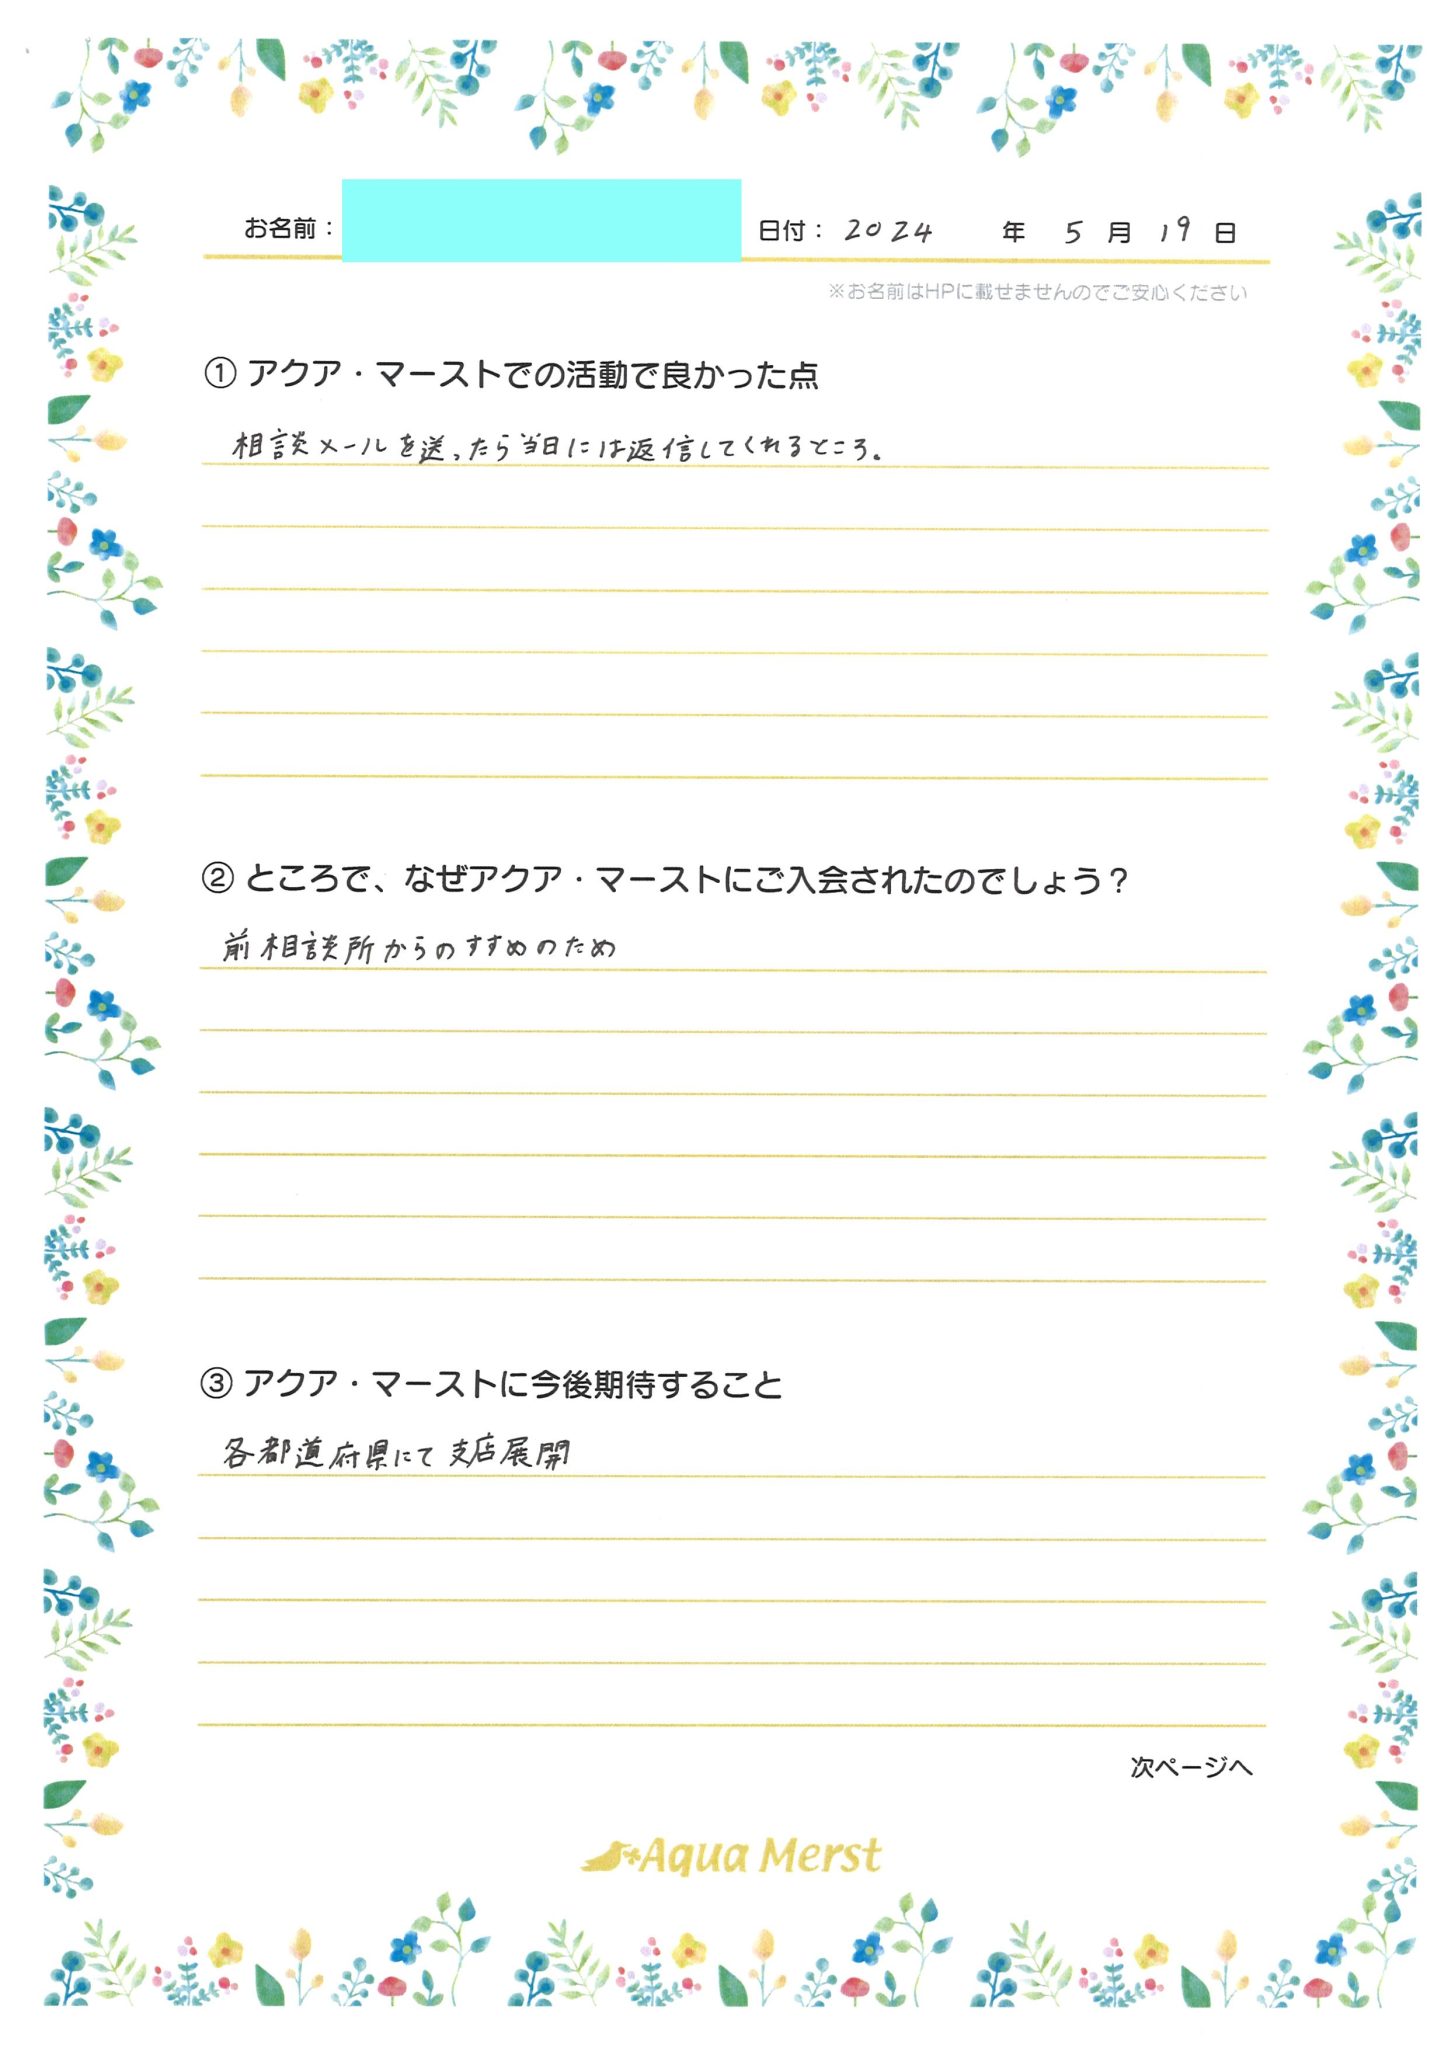 お名前： 日付： 2024 年 5 月 19 日
※お名前はHPに載せませんのでご安心ください
① アクア・マーストでの活動で良かった点
相談メールを送ったら当日には返信してくれるところ。
② ところで、なぜアクア・マーストにご入会されたのでしょう？
前相談所からのすすめのため
③ アクア・マーストに今後期待すること
各都道府県にて支店展開
次ページへ
Aqua Merst